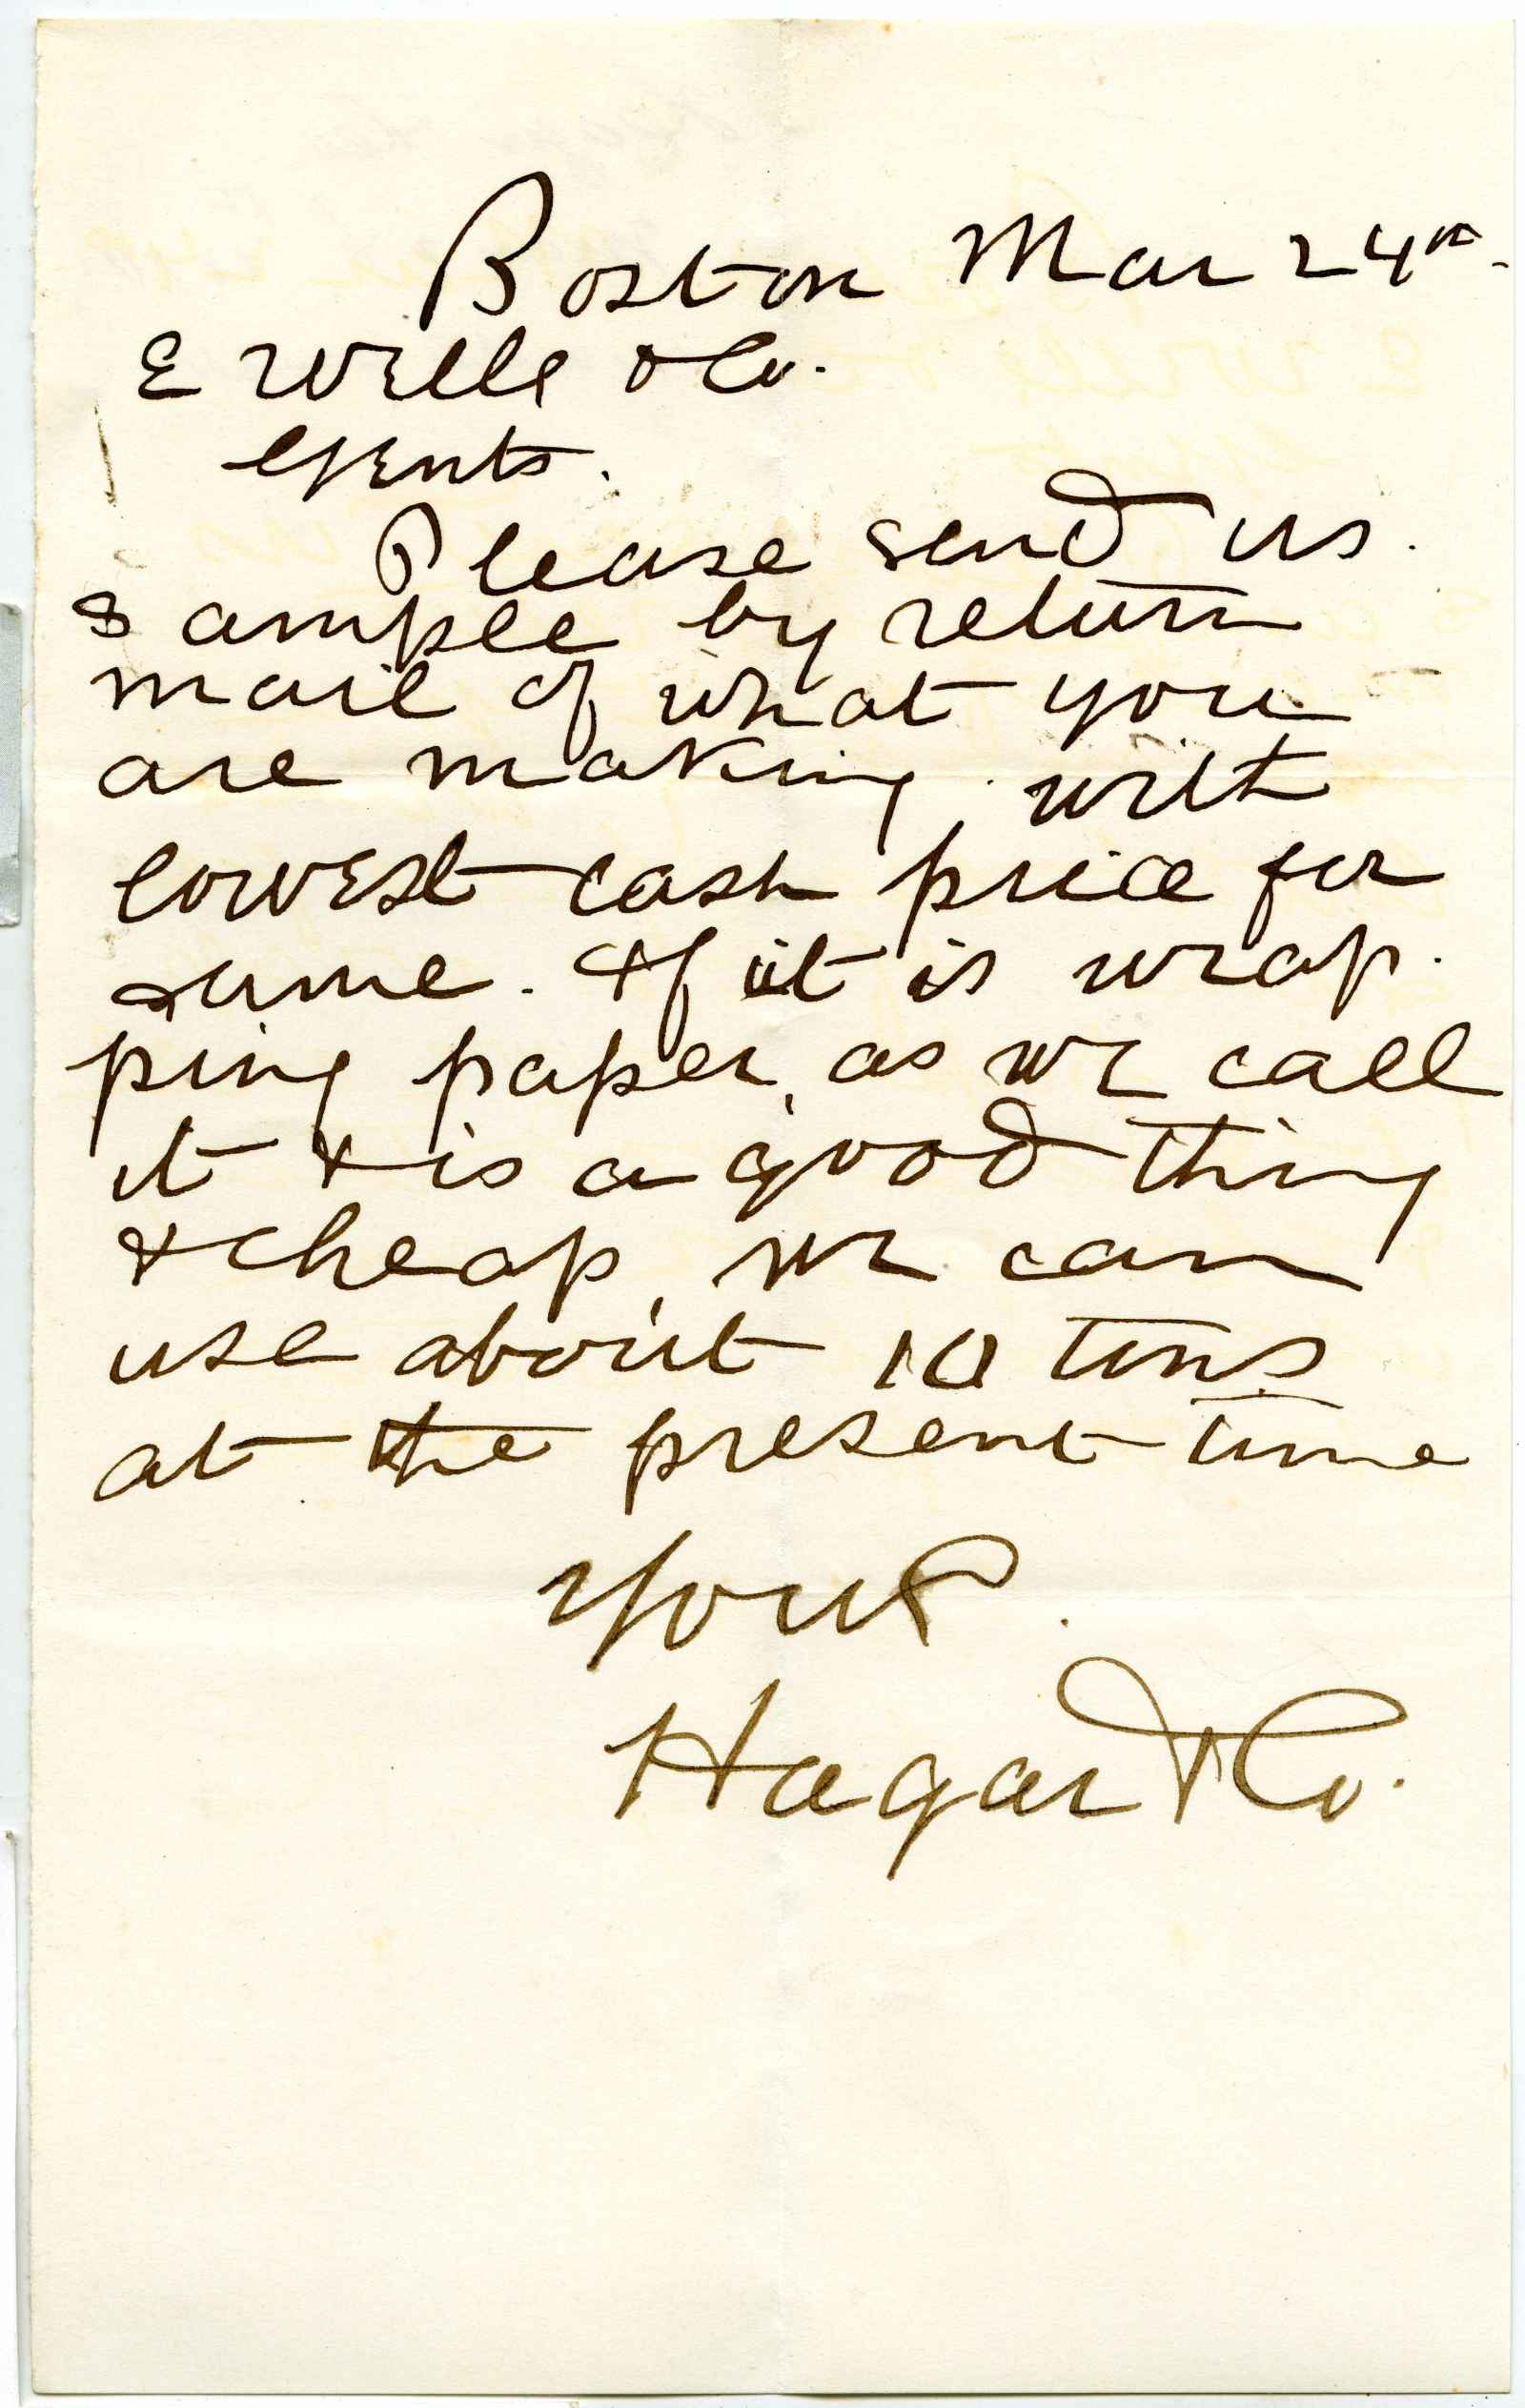 Boston Mar 24th.
E Wells & Co.
Gents.
Please send us
sample by return
mail of what you
are making, with
lowest cash price for
same. If it is wrap-
ping paper, as we call
it & is a good thing
& cheap, we can
use about 10 tons
at the present time
Yours
Hagar & Co.